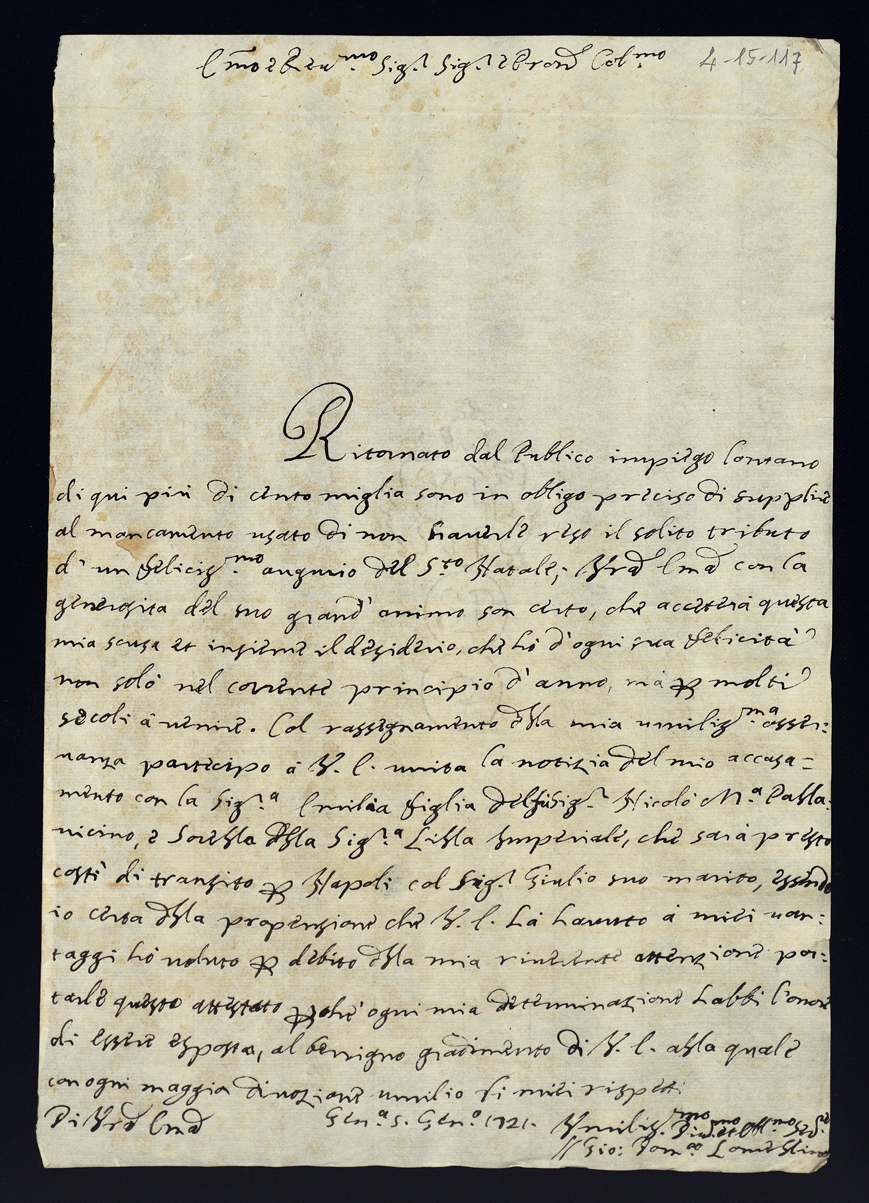 Em̃o e Reu.mo Sig.r Sig.r e Pron̄ Col.mo 4-15-117
Ritornato dal Publico impiego lontano
di qui piú di cento miglia sono in obligo preciso di supplire
al mancamento usato di non hauerle reso il solito tributo
d'un feliciss.mo augurio del S.to Natale; Vrã Emã con la
generosita del suo grand'animo son certo, che accetterá questa
mia scusa et insieme il desiderio, che hó d'ogni sua felicitá
non soló nel corrente principio d'anno, má ꝑ molti
secoli á uenire. Col rassegnamento della mia umiliss.ma osser:
uanza partecipo á V. E. unita la notizia del mio accasa=
mento con la Sig.ra Emilia figlia del fú Sig.r Nicoló M.a Palla:
uicino, e Sorella della Sig.ra Lilla Imperiale, che sará presto
costi di transito ꝑ Napoli col Sig.r Giulio suo marito, essendo
io certo della propenzione che V. E. há hauuto á miei uan:
taggi hó uoluto ꝑ debito della mia riuerente attenzione por:
tarle questo attestato ꝑche ogni mia determinazione habbi l'onore
di essere esposta, al benigno gradimento di V. E. alla quale
con ogni maggior diuozione umilio li miei rispetti
Di Vrã Emã Gen.a 5. Gen.o 1721. Vmiliss.mo Diu.mo et Obl.mo Ser.e
Gio: Dom.co Lomellino